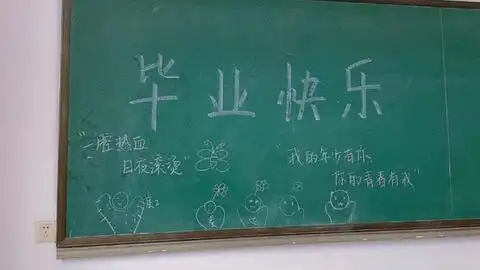 毕业快乐
"一腔热血
日夜滚烫"
"我的年少有你
你的青春有我"